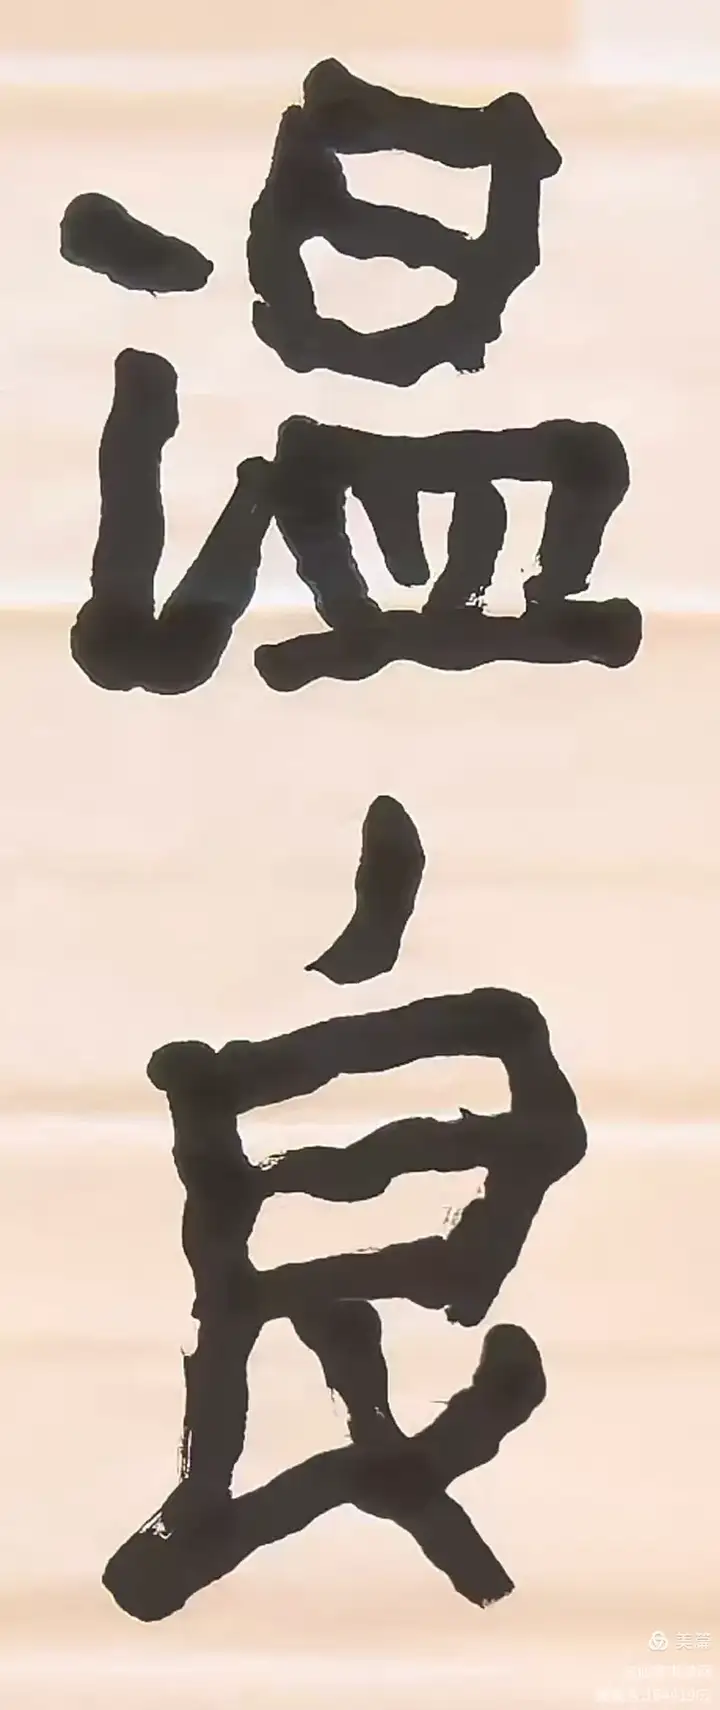 温良
美篇